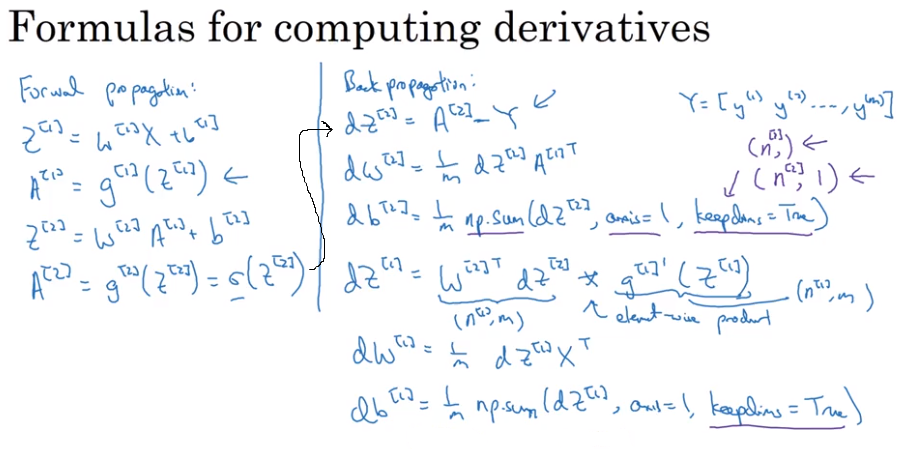 Formulas for computing derivatives
Forwal propagation:
Z^[1] = W^[1] X + b^[1]
A^[1] = g^[1](Z^[1]) ←
Z^[2] = W^[2] A^[1] + b^[2]
A^[2] = g^[2](Z^[2]) = σ(Z^[2])
Back propagation:
dZ^[2] = A^[2] - Y ←
dW^[2] = 1/m dZ^[2] A^[1]T
db^[2] = 1/m np.sum(dZ^[2], axis=1, keepdims=True)
dZ^[1] = W^[2]T dZ^[2] * g^[1]'(Z^[1])
(n^[1], m) ↑ element-wise product (n^[1], m)
dW^[1] = 1/m dZ^[1] X^T
db^[1] = 1/m np.sum(dZ^[1], axis=1, keepdims=True)
Y = [y^(1) y^(2) ..., y^(m)]
(n^[2],) ←
↓ (n^[2], 1) ←